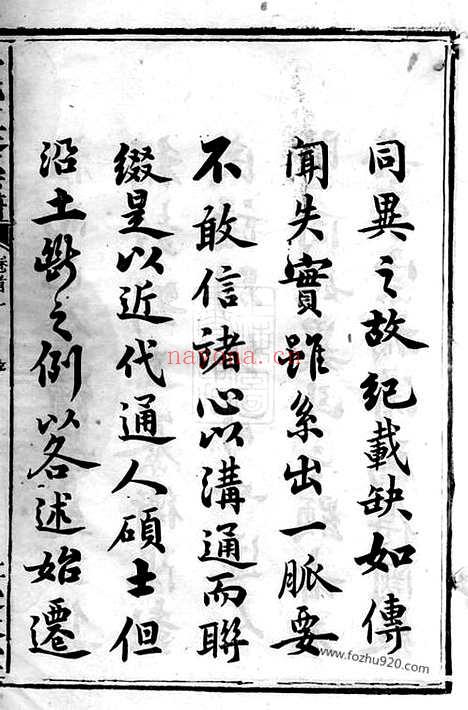 同異之故紀載缺如傳
聞失實雖系出一脈要
不敢信諸心以溝通而聯
綴是以近代通人碩士但
沿土斷之例以各述始遷
卷首
nayona.cn
www.fozhu920.com